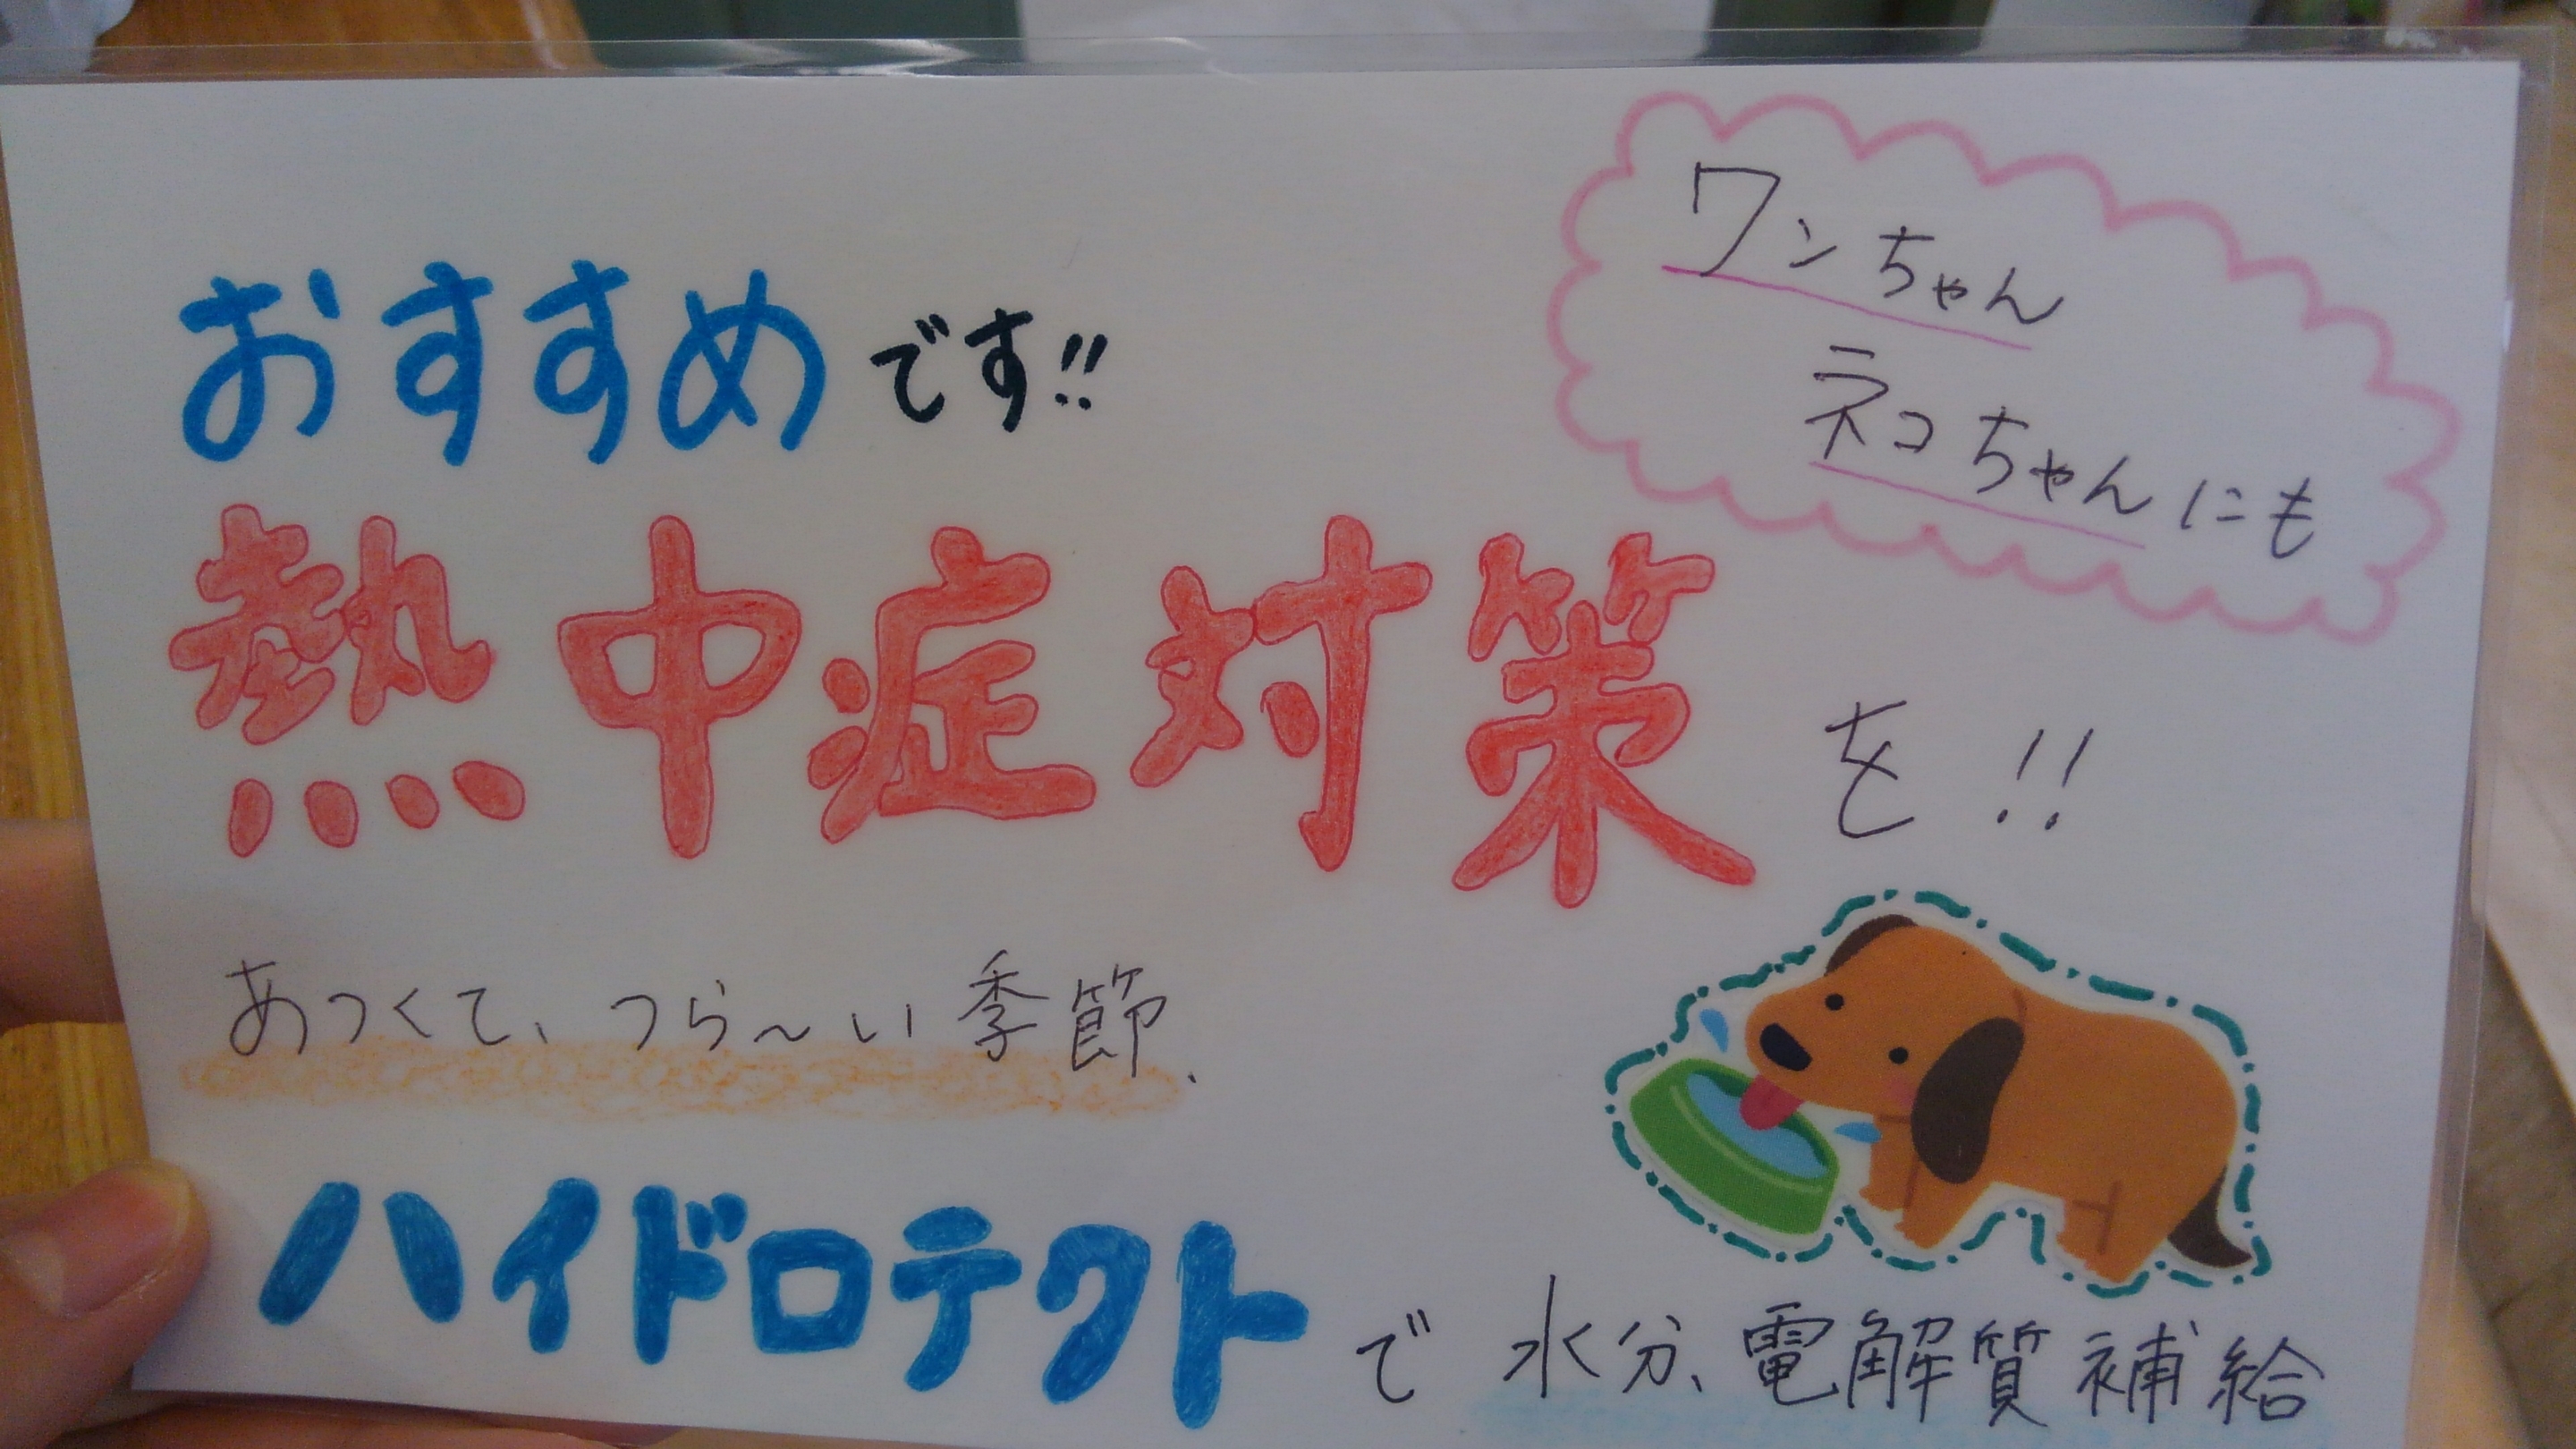 おすすめです!!
ワンちゃん
ネコちゃんにも
熱中症対策を!!
あつくて、つら〜い季節、
ハイドロテクトで水分、電解質補給